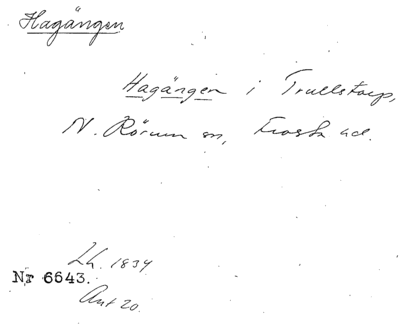 Hagängen
Hagängen i Trullstorp,
N. Rörum sn, Frosta hd.
Lh. 1834
Nr 6643.
Ant 20.